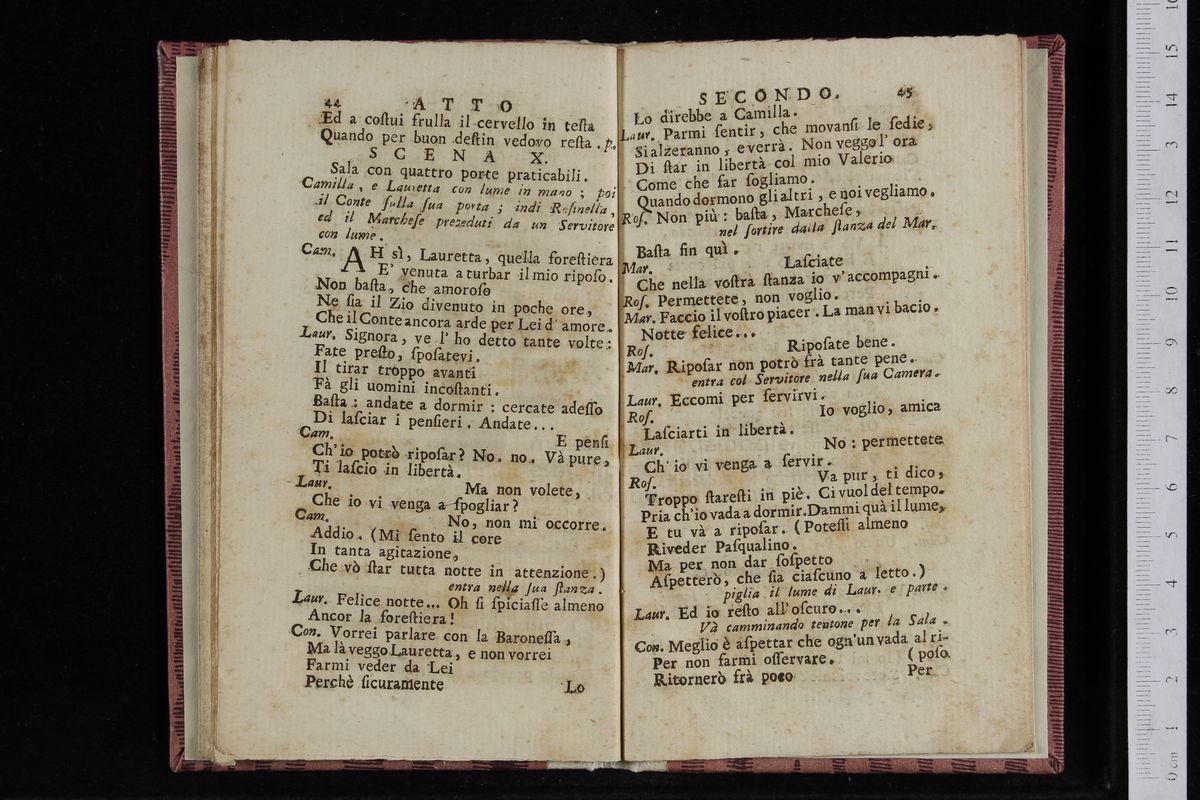 44 ATTO
Ed a coſtui frulla il cervello in teſta
Quando per buon deſtin vedovo reſta. p.
SCENA X.
Sala con quattro porte praticabili.
Camilla, e Lauretta con lume in mano; poi
il Conte ſulla ſua porta; indi Roſinella,
ed il Marcheſe preceduti da un Servitore
con lume.
Cam. AH sì, Lauretta, quella foreſtiera
E' venuta a turbar il mio ripoſo.
Non baſta, che amoroſo
Ne ſia il Zio divenuto in poche ore,
Che il Conte ancora arde per Lei d'amore.
Laur. Signora, ve l'ho detto tante volte:
Fate preſto, ſpoſatevi.
Il tirar troppo avanti
Fà gli uomini incoſtanti.
Baſta: andate a dormir: cercate adeſſo
Di laſciar i penſieri. Andate...
Cam. E penſi
Ch'io potrò ripoſar? No. no. Và pure,
Ti laſcio in libertà.
Laur. Ma non volete,
Che io vi venga a ſpogliar?
Cam. No, non mi occorre.
Addio. (Mi ſento il core
In tanta agitazione,
Che vò ſtar tutta notte in attenzione.)
entra nella ſua ſtanza.
Laur. Felice notte... Oh ſi ſpiciaſſe almeno
Ancor la foreſtiera!
Con. Vorrei parlare con la Baroneſſa,
Ma là veggo Lauretta, e non vorrei
Farmi veder da Lei
Perchè ſicuramente
Lo
SECONDO. 45
Lo direbbe a Camilla.
Laur. Parmi ſentir, che movanſi le ſedie,
Si alzeranno, e verrà. Non veggo l'ora
Di ſtar in libertà col mio Valerio
Come che far ſogliamo.
Quando dormono gli altri, e noi vegliamo.
Roſ. Non più: baſta, Marcheſe,
nel ſortire dalla ſtanza del Mar.
Baſta fin quì.
Mar. Laſciate
Che nella voſtra ſtanza io v'accompagni.
Roſ. Permettete, non voglio.
Mar. Faccio il voſtro piacer. La man vi bacio.
Notte felice...
Roſ. Ripoſate bene.
Mar. Ripoſar non potrò frà tante pene.
entra col Servitore nella ſua Camera.
Laur. Eccomi per ſervirvi.
Roſ. Io voglio, amica
Laſciarti in libertà.
Laur. No: permettete
Ch'io vi venga a ſervir.
Roſ. Va pur, ti dico,
Troppo ſtareſti in piè. Ci vuol del tempo.
Pria ch'io vada a dormir. Dammi quà il lume,
E tu và a ripoſar. (Poteſſi almeno
Riveder Paſqualino.
Ma per non dar ſoſpetto
Aſpetterò, che ſia ciaſcuno a letto.)
piglia il lume di Laur. e parte.
Laur. Ed io reſto all'oſcuro...
Và camminando tentone per la Sala.
Con. Meglio è aſpettar che ogn'un vada al ri-
Per non farmi oſſervare. (poſo.
Ritornerò frà poco
Per
0 cm 1 2 3 4 5 6 7 8 9 10 11 12 13 14 15 16